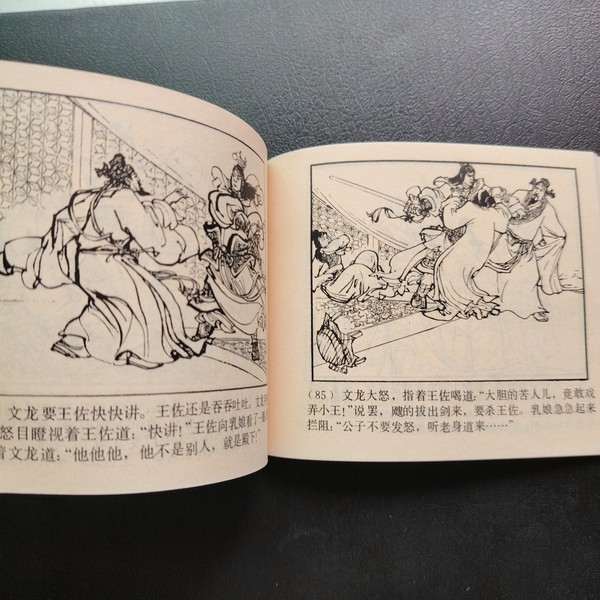 文龙要王佐快快讲。王佐还是吞吞吐吐。文龙
怒目瞪视着王佐道：“快讲！”王佐向乳娘看了一眼
着文龙道：“他他他，他不是别人，就是殿下！”
（85）文龙大怒，指着王佐喝道：“大胆的苦人儿，竟敢戏
弄小王！”说罢，飕的拔出剑来，要杀王佐。乳娘急急起来
拦阻：“公子不要发怒，听老身道来……”